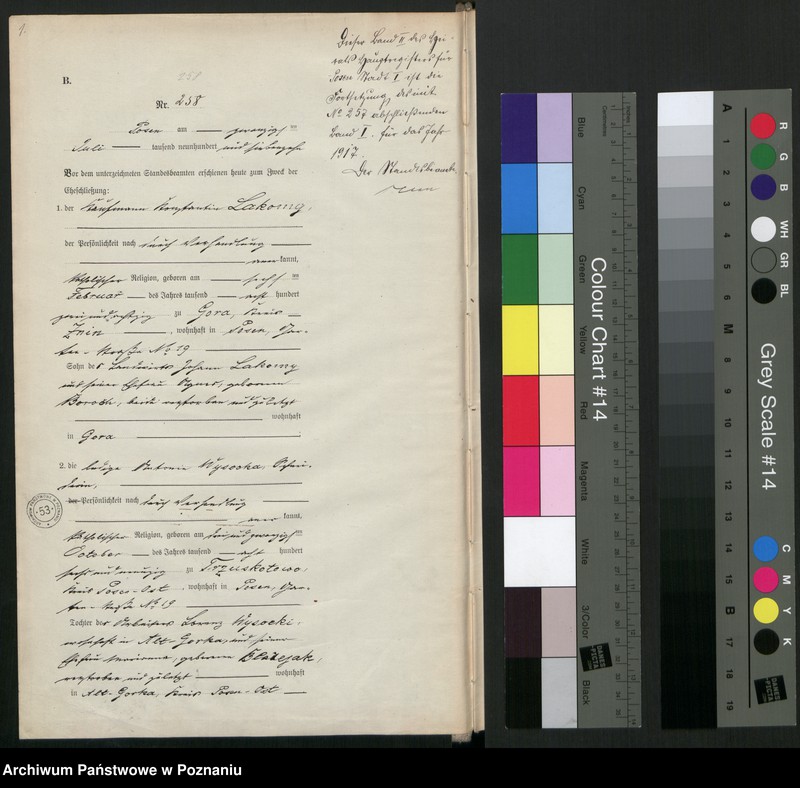 1.
B.
258
Nr. 258
Dieser Band II des Hei-
rats Hauptregisters für
Posen Stadt I ist die
Fortsetzung des mit
No 257 abschließenden
Band I. für das Jahr
1917.
Der Standesbeamte.
Posen am zwanzigsten
Juli tausend neunhundert und siebenzehn
Vor dem unterzeichneten Standesbeamten erschienen heute zum Zweck der
Eheschließung:
1. der Kaufmann Konstantin Lakomy,
der Persönlichkeit nach durch Verhandlung
kannt,
katholischer Religion, geboren am sechsten
Februar des Jahres tausend acht hundert
zwei und achtzig zu Gora, Kreis
Znin, wohnhaft in Posen, Gar-
ten-Straße No 19
Sohn des Landwirts Johann Lakomy
und seiner Ehefrau Agnes, geborenen
beide verstorben und zuletzt
wohnhaft
in Gora
2. die ledige Antonie Wysocka, Schnei-
derin,
der Persönlichkeit nach durch Verhandlung
kannt,
katholischer Religion, geboren am drei und zwanzigsten
October des Jahres tausend acht hundert
sechs und neunzig zu Trzuskotowo,
Kreis Posen-Ost, wohnhaft in Posen, Gar-
ten-Straße No 19
Tochter des Lorenz Wysocki,
wohnhaft in Alt-Gorka, und seiner
Ehefrau Marianna, geborenen Blazejak,
verstorben und zuletzt wohnhaft
in Alt-Gorka, Kreis Posen-Ost
53
Colour Chart #14
Blue
Cyan
Green
Yellow
Red
Magenta
White
3/Color
Black
Centimetres
Inches
DANES
PICTA
Grey Scale #14
A
1
2
3
4
5
6
M
8
9
10
11
12
13
14
15
B
17
18
19
R
G
B
WH
GR
BL
C
M
Y
K
DANES
PICTA
Archiwum Państwowe w Poznaniu